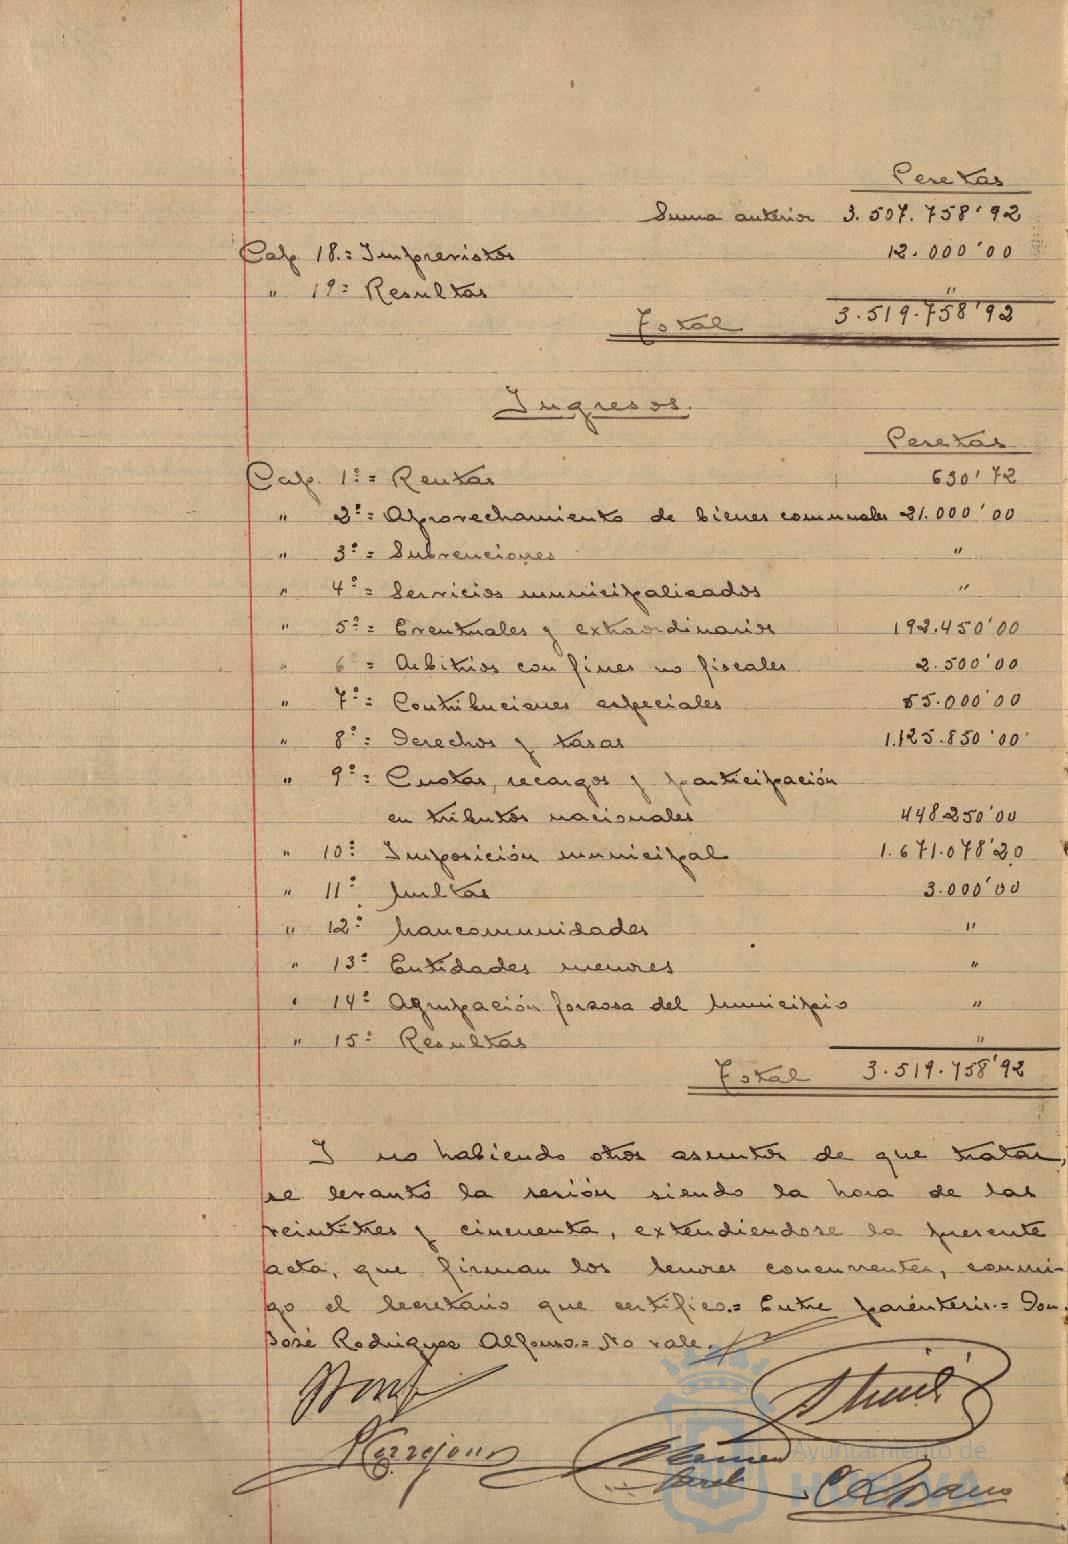 Pesetas
Suma anterior 3.507.758'92
Cap. 18.= Imprevistos 12.000'00
" 19= Resultas "
Total 3.519.758'92
Ingresos.
Pesetas
Cap. 1º= Rentas 630'72
" 2º= Aprovechamiento de bienes comunales 21.000'00
" 3º= Subvenciones "
" 4º= Servicios municipalizados "
" 5º= Eventuales y extraordinarios 192.450'00
" 6º= Arbitrios con fines no fiscales 2.500'00
" 7º= Contribuciones especiales 55.000'00
" 8º= Derechos y tasas 1.125.850'00
" 9º= Cuotas, recargos y participación
en tributos nacionales 448.250'00
" 10º Imposición municipal 1.671.078'20
" 11º Multas 3.000'00
" 12º Mancomunidades "
" 13º Entidades menores "
" 14º Agrupación forzosa del Municipio "
" 15º Resultas "
Total 3.519.758'92
Y no habiendo otros asuntos de que tratar,
se levantó la sesión siendo la hora de las
veintitres y cincuenta, extendiendose la presente
acta, que firman los Señores concurrentes, conmi-
go el Secretario que certifico.= Entre paréntesis.= Don
José Rodríguez Alfonso.= No vale.
Ayuntamiento de
HUELVA